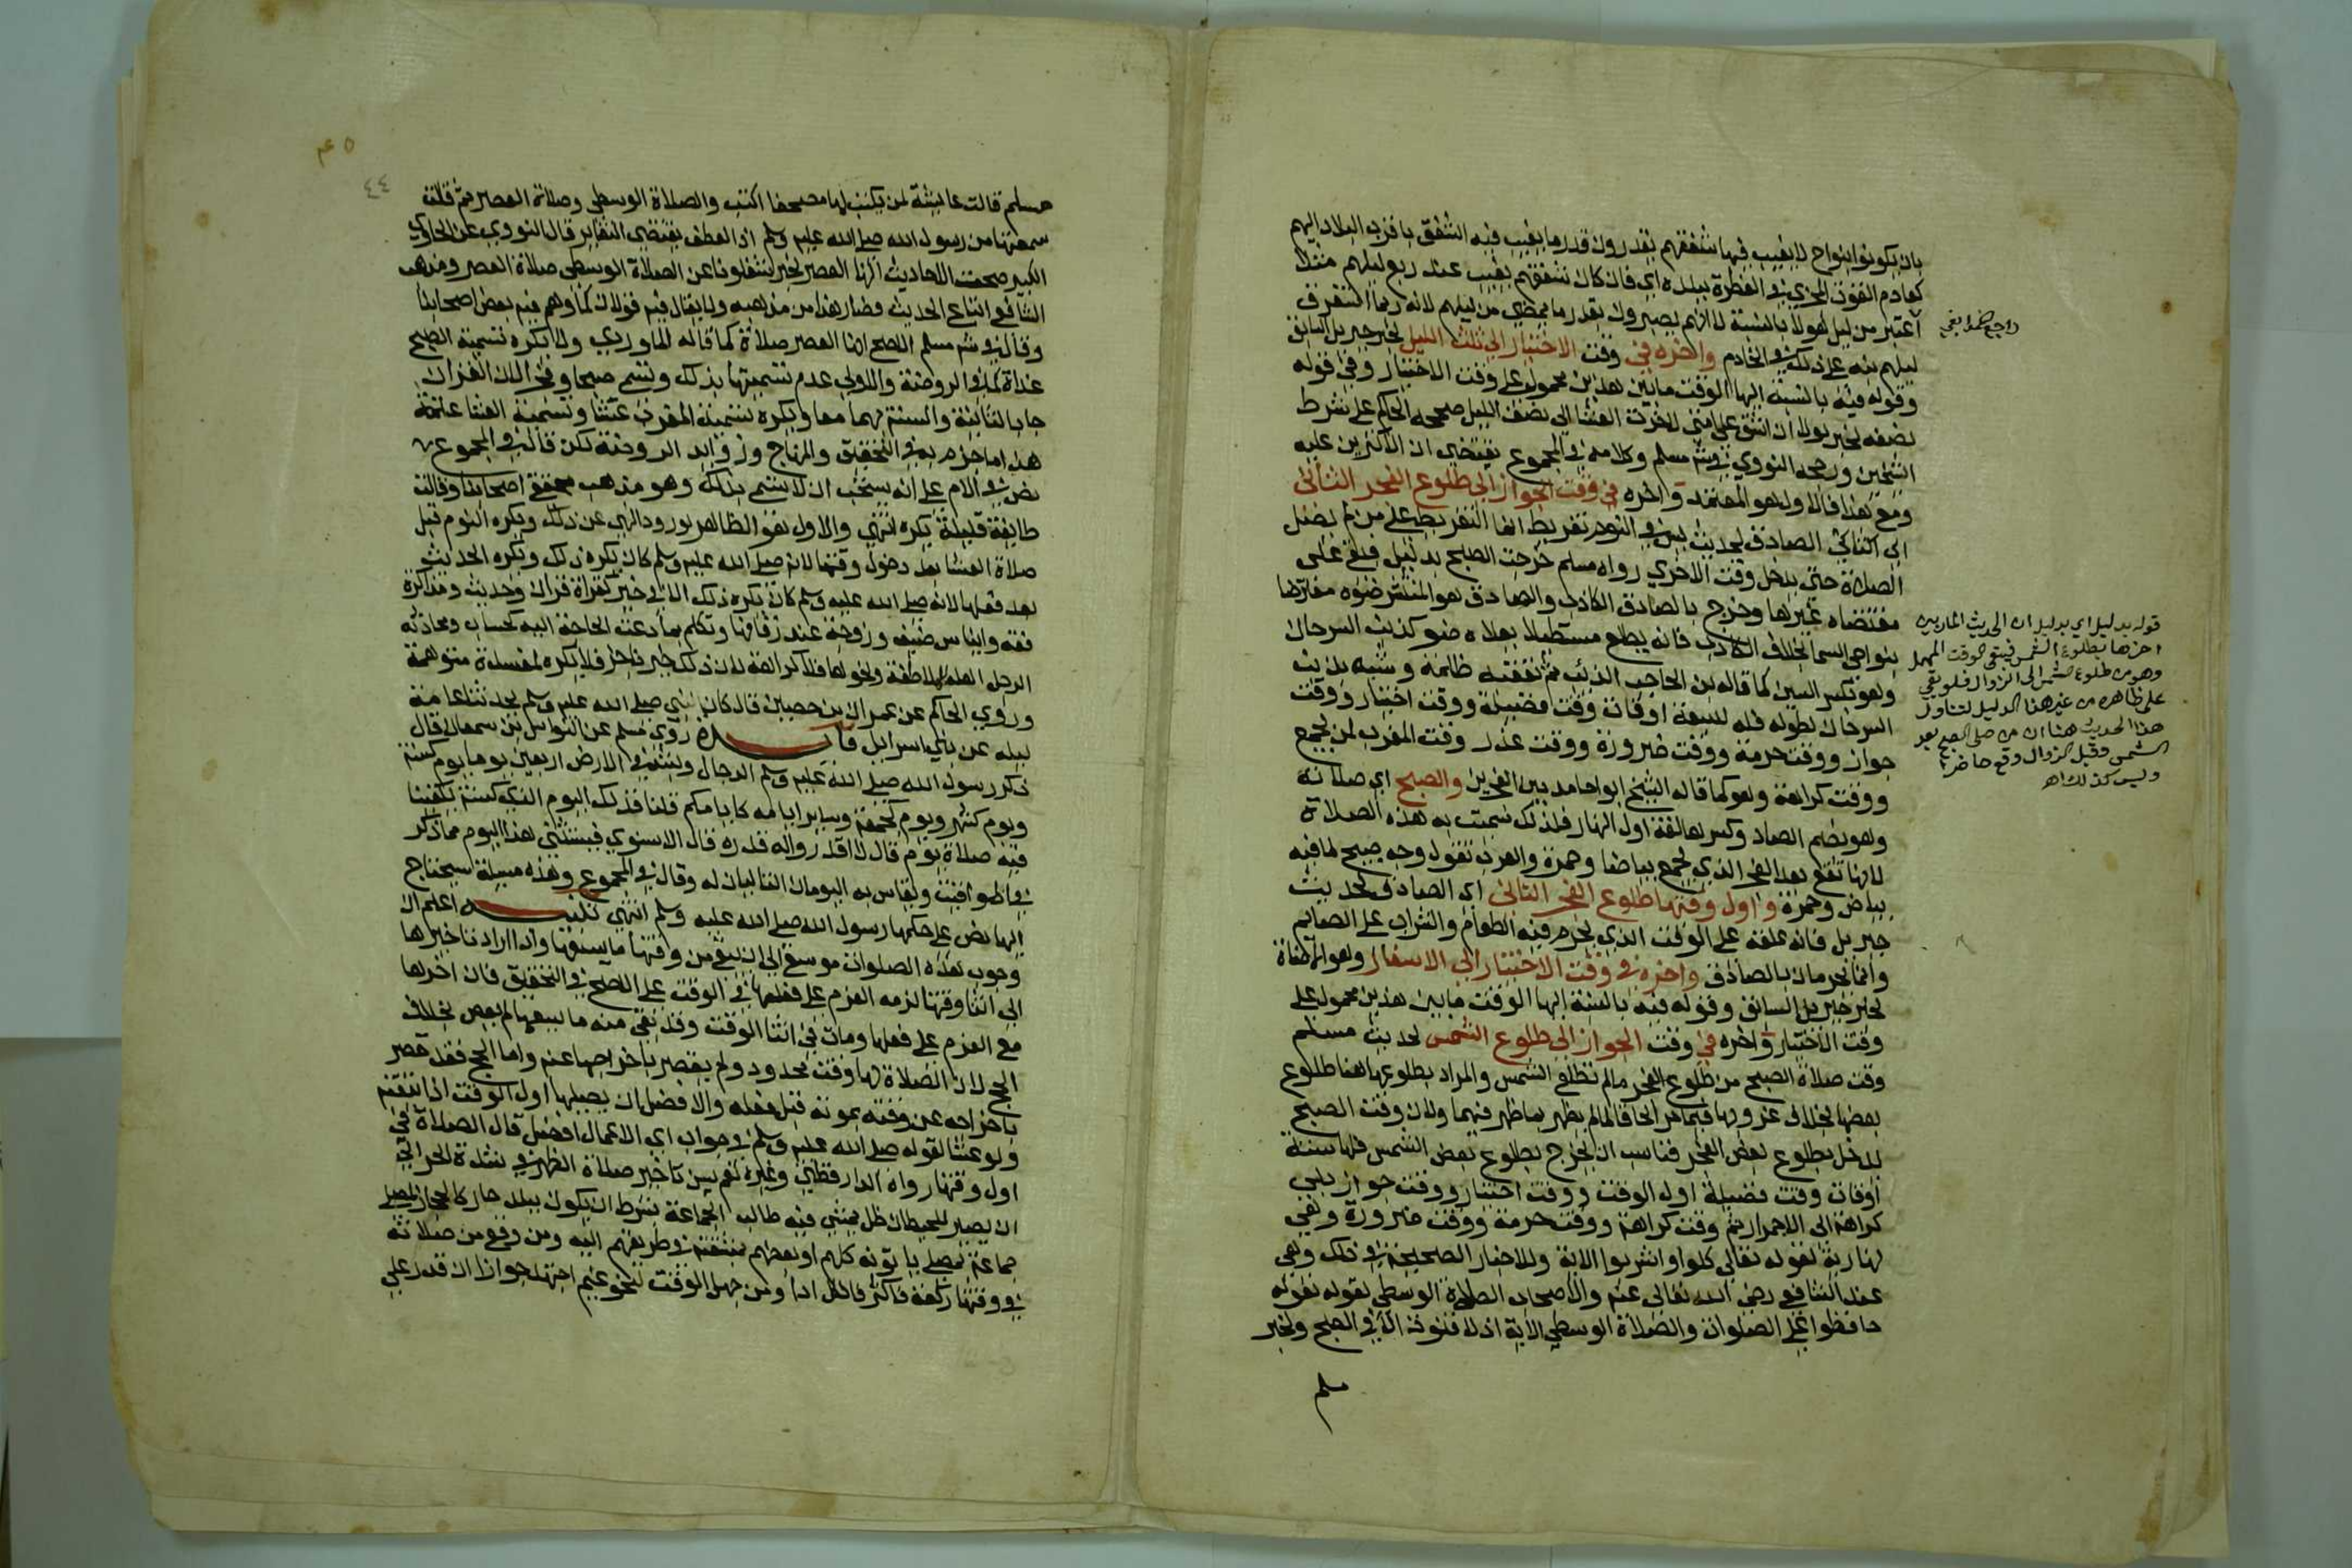 بان يكونوا بنواح لا يغيب فيها شفقهم يقدرون قدر ما يغيب فيه الشفق باقرب البلاد اليهم
كعادم القوت المجزي في الفطرة ببلده اي فان كان شفقهم يغيب عند ربع ليلهم مثلا
اعتبر من ليل هولا بالنسبة لا انهم يصبرون بقدر ما يمضي من ليلهم لانه ربما استغرق
ليلهم نبه على ذلك في الخادم واخره في وقت الاختيار الى ثلث الليل لخبر جبريل السابق
وقوله فيه بالنسبة اليها الوقت ما بين هذين محمول على وقت الاختيار وفي قوله
نصفه لخبر لولا ان اشق على امتي لاخرت العشا الى نصف الليل صححه الحاكم على شرط
الشيخين ورجحه النووي في شرح مسلم وكلامه في المجموع يقتضي ان الاكثرين عليه
ومع هذا فالاول هو المعتمد واخره في وقت الجواز الى طلوع الفجر الثاني
اي الثاني الصادق لحديث ليس في النوم تفريط انما التفريط على من لم يصل
الصلاة حتى يدخل وقت الاخرى رواه مسلم خرجت الصبح بدليل فبقي على
مقتضاه في غيرها وخرج بالصادق الكاذب والصادق هو المنتشر ضوه معترضا
بنواحي السما بخلاف الكاذب فانه يطلع مستطيلا يعلاه ضو كذنب السرحان
وهو بكسر السين كما قاله ابن الحاجب الذئب ثم تعقبه ظلمة وشبه بذنب
السرحان لطوله فله سبعة اوقات وقت فضيلة ووقت اختيار ووقت
جواز ووقت حرمة ووقت ضرورة ووقت عذر وقت المغرب لمن يجمع
ووقت كراهة وهو كما قاله الشيخ ابو حامد بين الفجرين والصبح اي صلاته
وهو بضم الصاد وكسرها لغة اول النهار فلذلك سميت به هذه الصلاة
لانها تقع بعد الفجر الذي يجمع بياضا وحمرة والعرب تقول وجه صبيح لما فيه
بياض وحمرة واول وقتها طلوع الفجر الثاني اي الصادق لحديث
جبريل فانه علقه على الوقت الذي يحرم فيه الطعام والشراب على الصايم
وانما يحرمان بالصادق واخره في وقت الاختيار الى الاسفار وهو الاضاة
لخبر جبريل السابق وقوله فيه بالنسبة اليها الوقت ما بين هذين محمول على
وقت الاختيار واخره في وقت الجواز الى طلوع الشمس لحديث مسلم
وقت صلاة الصبح من طلوع الفجر ما لم تطلع الشمس والمراد بطلوعها هنا طلوع
بعضها بخلاف غروبها فيما مر الحاقا لما لم يظهر بما ظهر فيهما ولان وقت الصبح
يدخل بطلوع بعض الفجر فناسب ان يخرج بطلوع بعض الشمس فلها ستة
اوقات وقت فضيلة اول الوقت ووقت اختيار ووقت جواز بلا
كراهة الى الاحمرار ثم وقت كراهة ووقت حرمة ووقت ضرورة وهي
نهارية لقوله تعالى كلوا واشربوا الاية وللاخبار الصحيحة في ذلك وهي
عند الشافعي رضي الله تعالى عنه والاصحاب الصلاة الوسطى لقوله تعالى
حافظوا على الصلوات والصلاة الوسطى الاية اذ لا قنوت الا في الصبح ولخبر
مسلم
راجع هذا بقي
قوله بدليل اي بدليل ان الحديث المار بين
اخرها بطلوع الشمس فيبقى الوقت المهمل
وهو من طلوع الشمس الى الزوال فلو بقي
على ظاهره من غير هذا الدليل لتناول
هذا الحديث هنا ان من صلى الصبح بعد
الشمس وقبل الزوال وقع حاضرا
وليس كذلك اه
٤٤
مسلم قالت عايشة لمن يكتب لها مصحفا اكتب والصلاة الوسطى وصلاة العصر ثم قالت
سمعتها من رسول الله صلى الله عليه وسلم اذ العطف يقتضي التغاير قال النووي عن الحاوي
الكبير صحت الاحاديث انها العصر لخبر شغلونا عن الصلاة الوسطى صلاة العصر ومذهب
الشافعي اتباع الحديث فصار هذا من مذهبه ولا يقال فيه قولان كما وهم فيه بعض اصحابنا
وقال في شرح مسلم الاصح انها العصر صلاة كما قاله الماوردي ولا تكره تسمية الصبح
غداة كما في الروضة والاولى عدم تسميتها بذلك وتسمى صبحا وفجرا لان القران
جا بالثانية والسنة بهما معا ويكره تسمية المغرب عشا وتسمية العشا عتمة
هذا ما جزم به في التحقيق والمنهاج وزوايد الروضة لكن قال في المجموع
نص في الام على انه يستحب ان لا تسمى بذلك وهو مذهب محققي اصحابنا وقالت
طايفة قليلة يكره انتهى والاول هو الظاهر لورود النهي عن ذلك ويكره النوم قبل
صلاة العشا بعد دخول وقتها لانه صلى الله عليه وسلم كان يكره ذلك ويكره الحديث
بعد فعلها لانه صلى الله عليه وسلم كان يكره ذلك الا في خير كقراة قران وحديث ومذاكرة
فقه وايناس ضيف وزوجة عند زفافها وتكلم بما دعت الحاجة اليه كحساب ومحادثة
الرجل اهله لملاطفة ونحوها فلا كراهة لان ذلك خير ناجز فلا يكره لمفسدة متوهمة
وروى الحاكم عن عمران بن حصين قال كان النبي صلى الله عليه وسلم يحدثنا عامة
ليله عن بني اسرائيل فايدة روى مسلم عن النواس بن سمعان قال
ذكر رسول الله صلى الله عليه وسلم الدجال ولبثه في الارض اربعين يوما يوم كسنة
ويوم كشهر ويوم كجمعة وساير ايامه كايامكم قلنا فذلك اليوم الذي كسنة يكفينا
فيه صلاة يوم قال لا اقدروا له قدره قال الاسنوي فيستثنى هذا اليوم مما ذكر
في المواقيت ويقاس به اليومان التاليان له وقال في المجموع وهذه مسيلة سيحتاج
اليها نص على حكمها رسول الله صلى الله عليه وسلم انتهى تنبيه اعلم ان
وجوب هذه الصلوات موسع الى ان يبقى من وقتها ما يسعها واذا اراد تاخيرها
الى اثنا وقتها لزمه العزم على فعلها في الوقت على الاصح في التحقيق فان اخرها
مع العزم على فعلها ومات في اثنا الوقت وقد بقي منه ما يسعها لم يعص بخلاف
الحج لان الصلاة لها وقت محدود ولم يقصر باخراجها عنه واما الحج فقد قصر
باخراجه عن وقته بموته قبل فعله والافضل ان يصليها اول الوقت اذا تيقنه
ولو عشا لقوله صلى الله عليه وسلم في جواب اي الاعمال افضل قال الصلاة في
اول وقتها رواه الدارقطني وغيره نعم يسن تاخير صلاة الظهر في شدة الحر الى
ان يصير للحيطان ظل يمشي فيه طالب الجماعة بشرط ان يكون ببلد حار كالحجاز لمصلي
جماعة بمصلى ياتونه كلهم او بعضهم بمشقة في طريقهم اليه ومن وقع من صلاته
في وقتها ركعة فاكثر فالكل ادا ومن جهل الوقت لنحو غيم اجتهد جوازا ان قدر على